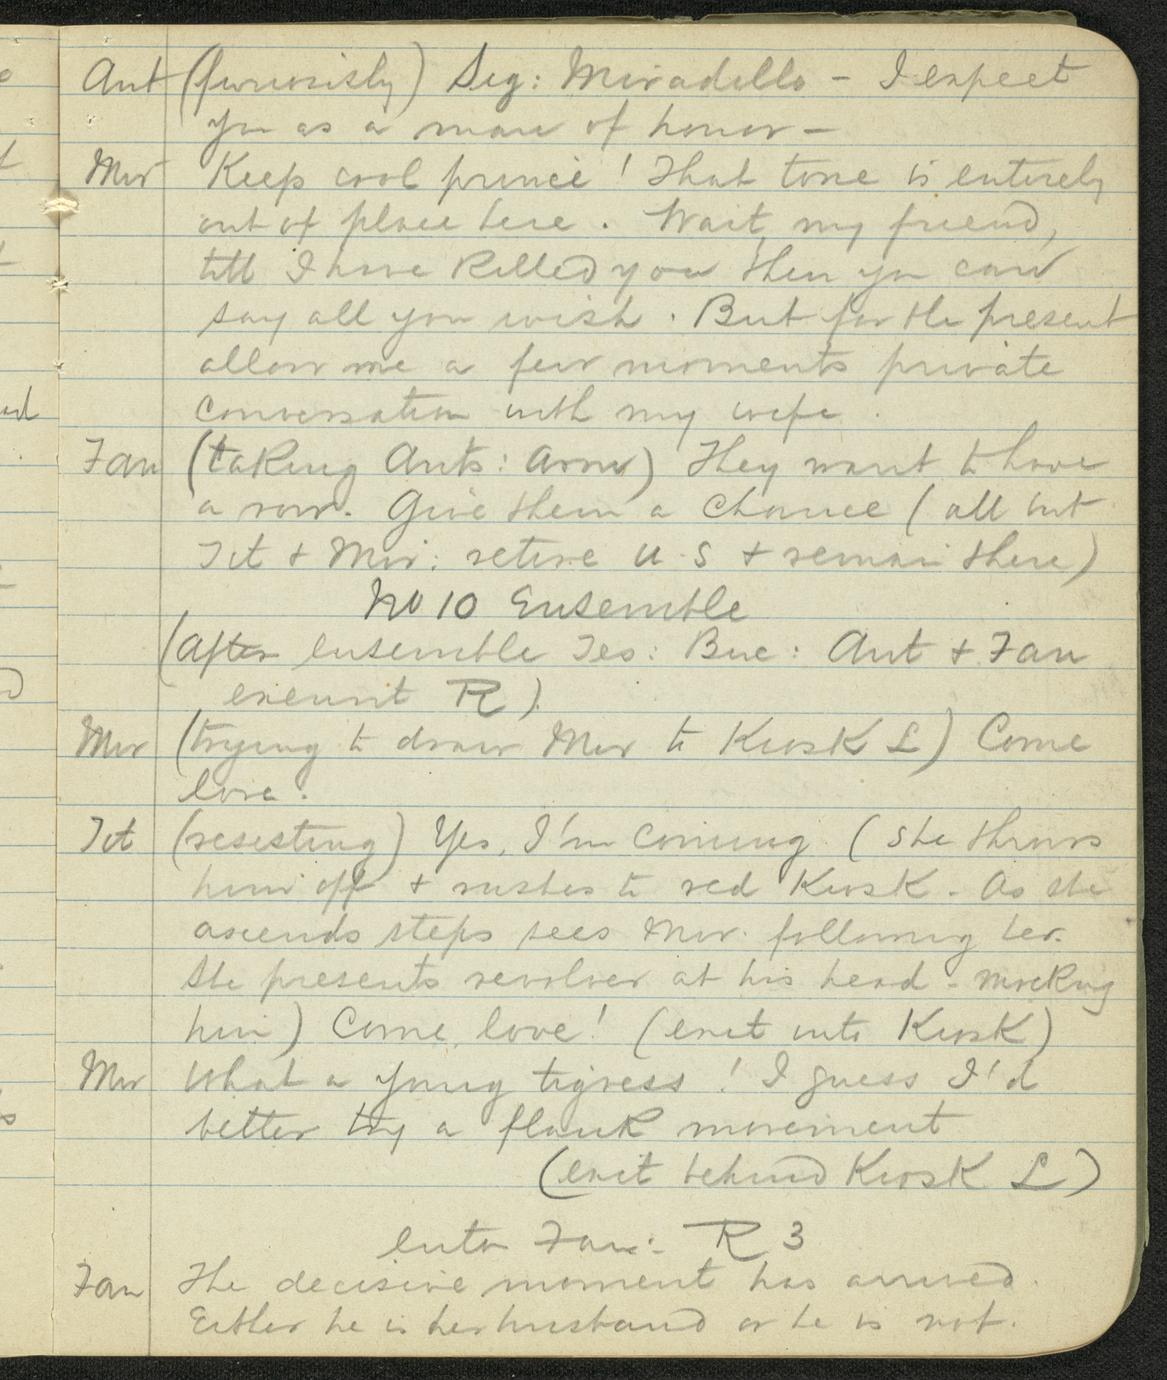 Ant (furiously) Sig: Miradillo – I expect
you as a man of honor –
Mir Keep cool prince! That tone is entirely
out of place here. Wait, my friend,
till I have killed you then you can
say all you wish. But for the present
allow me a few moments private
conversation with my wife.
Fan (taking Ants: arm) They want to have
a row. Give them a chance (all but
Tit + Mir: retire U.S + remain there)
No 10 Ensemble
(after ensemble Tes: Buc: Ant + Fan
exeunt R).
Mir (trying to draw Mir to Kiosk L) Come
love.
Tit (resesting) Yes, I'm coming. (She throws
him off + rushes to red Kiosk – As she
ascends steps sees Mir. following her.
She presents revolver at his head – mocking
him) Come, love! (exit into Kiosk)
Mir What a young tigress! I guess I'd
better try a flank movement
(exit behind Kiosk L)
enter Fan: R 3
Fan The decisive moment has arrived.
Either he is her husband or he is not.